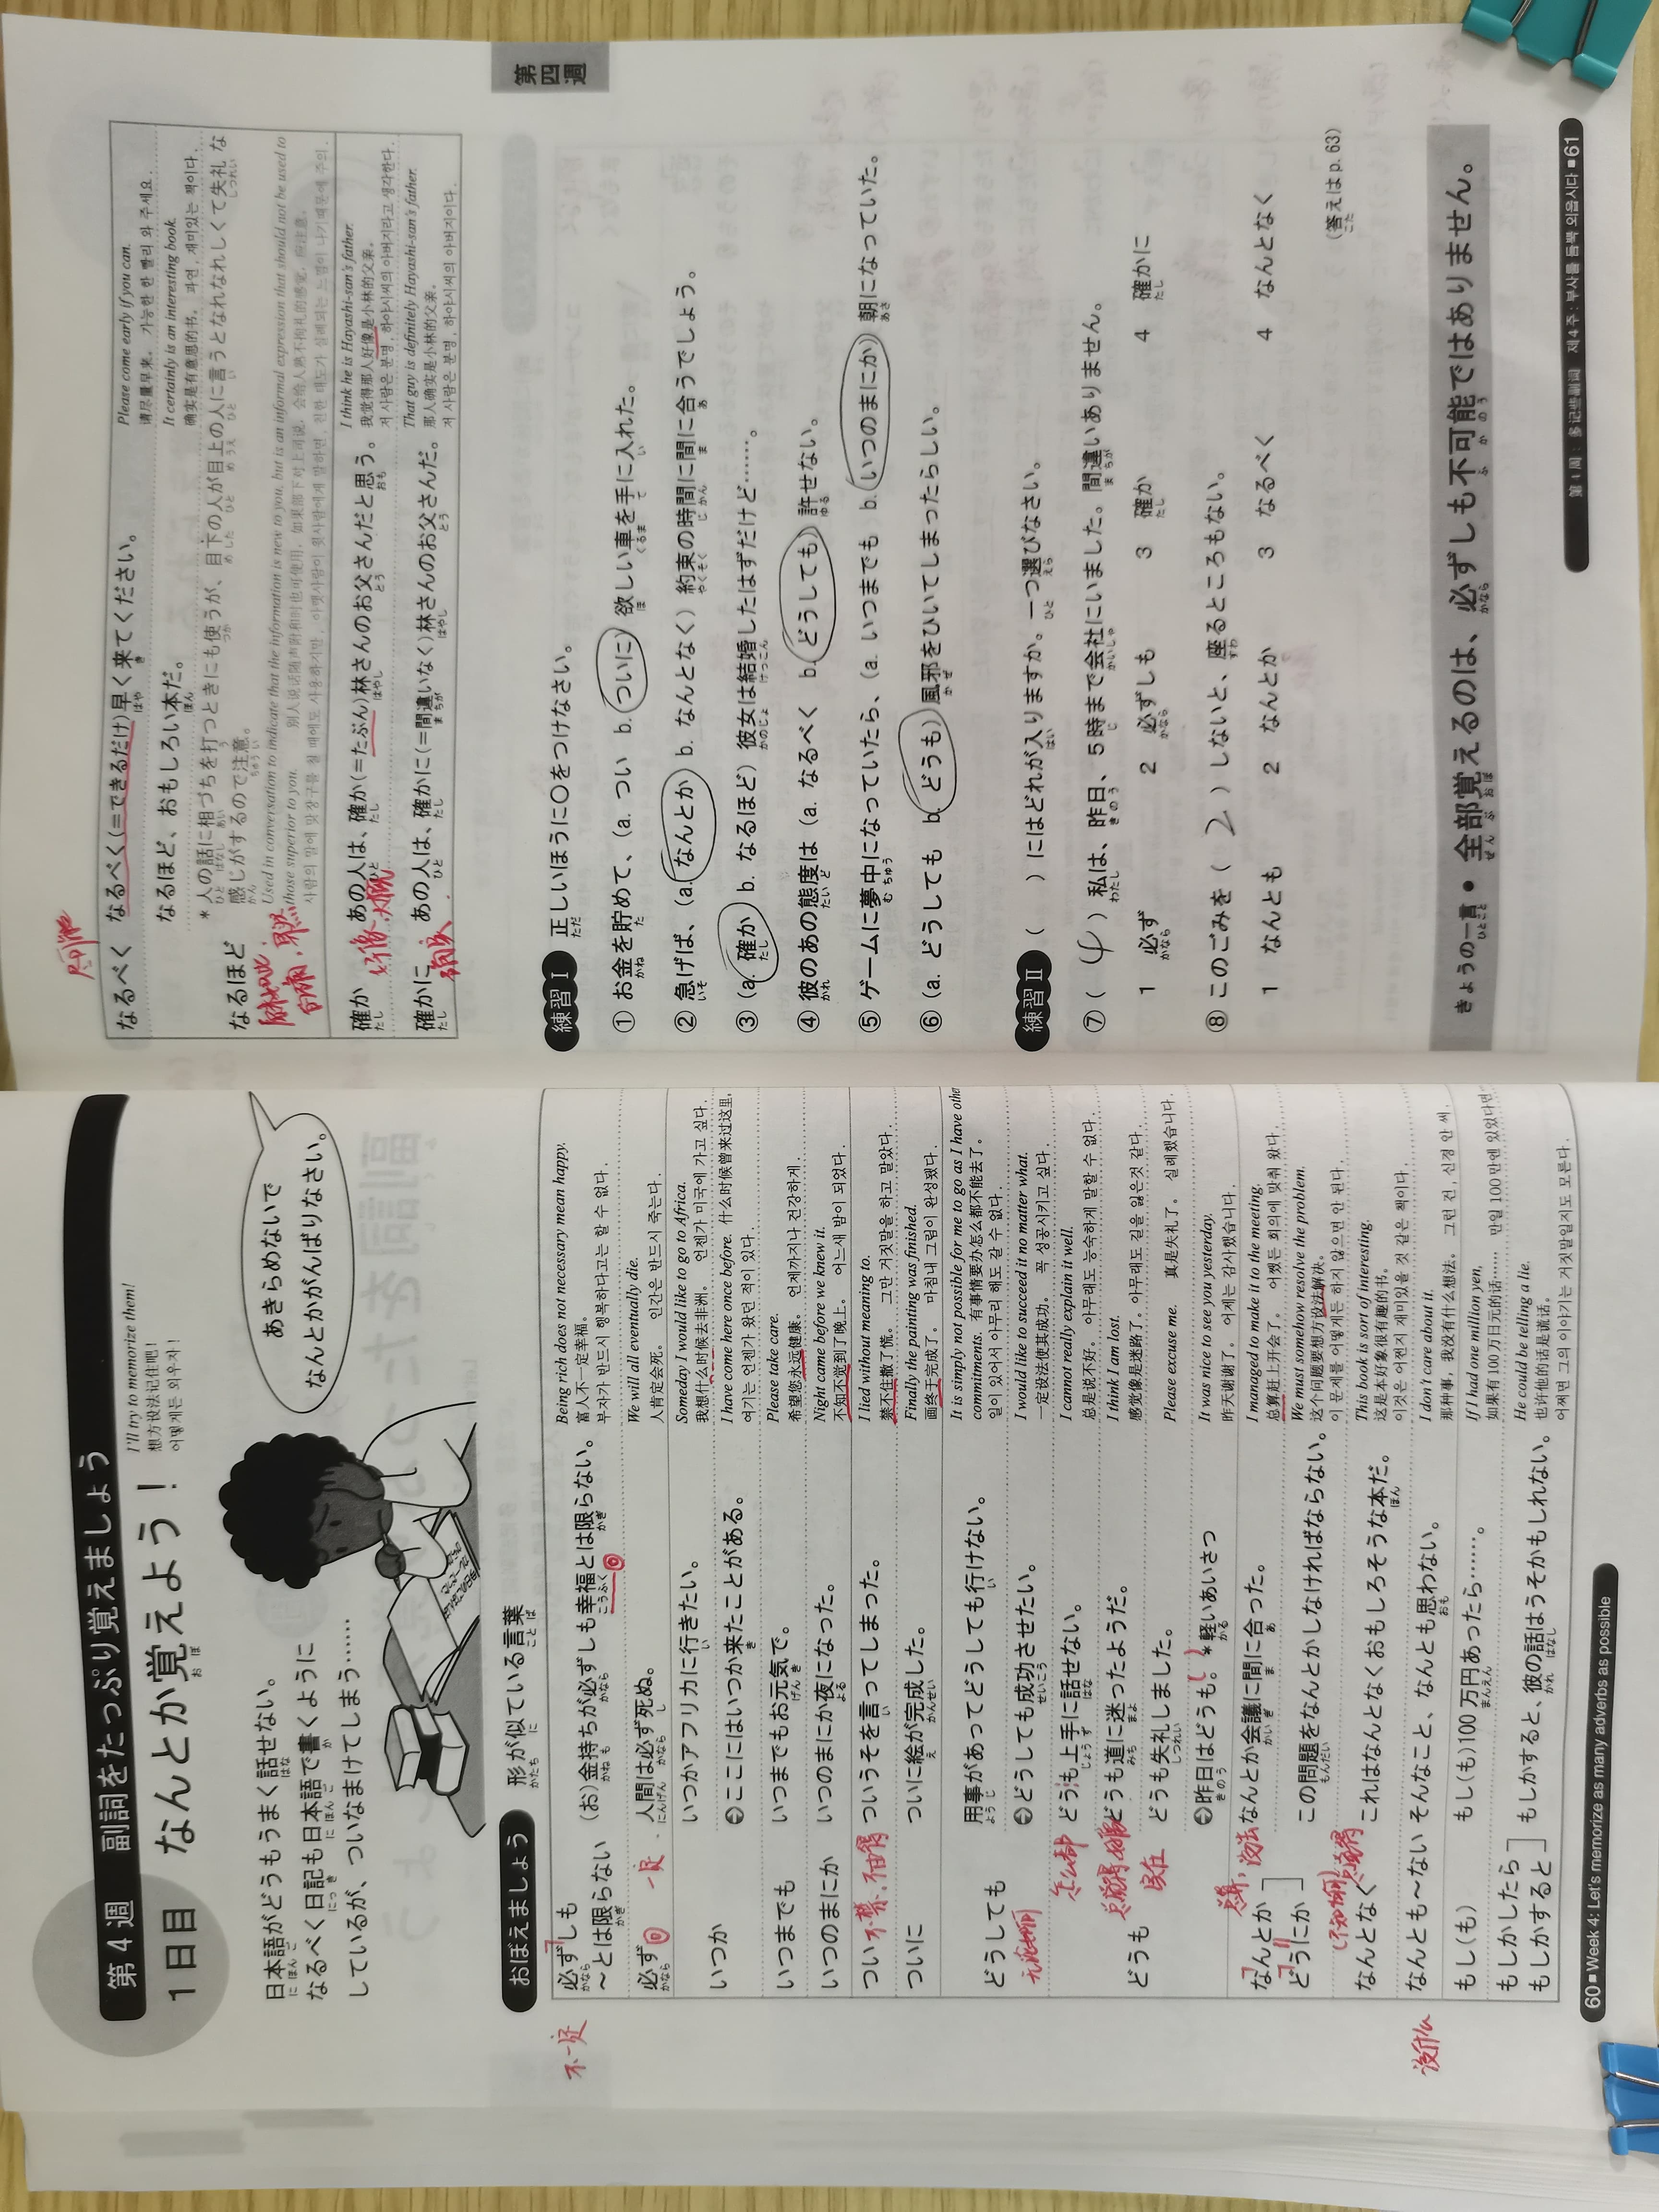 第4週 副詞をたっぷり覚えましょう
1日目 なんとか覚えよう!
I'll try to memorize them!
想方设法记住吧!
어떻게든 외우자!
日本語がどうもうまく話せない。
なるべく日記も日本語で書くように
しているが、ついなまけてしまう……
あきらめないで
なんとかがんばりなさい。
おぼえましょう 形が似ている言葉
不一定
必ずしも
~とは限らない
(お)金持ちが必ずしも幸福とは限らない。
Being rich does not necessary mean happy.
富人不一定幸福。
부자가 반드시 행복하다고는 할 수 없다.
必ず 一定 人間は必ず死ぬ。
We will all eventually die.
人肯定会死。 인간은 반드시 죽는다.
いつか いつかアフリカに行きたい。
Someday I would like to go to Africa.
我想什么时候去非洲。 언젠가 미국에 가고 싶다.
➲ここにはいつか来たことがある。
I have come here once before. 什么时候曾来过这里。
여기는 언젠가 왔던 적이 있다.
いつまでも いつまでもお元気で。
Please take care.
希望您永远健康。 언제까지나 건강하게.
いつのまにか いつのまにか夜になった。
Night came before we knew it.
不知不觉到了晚上。 어느새 밤이 되었다.
つい 不禁,不由得 ついうそを言ってしまった。
I lied without meaning to.
禁不住撒了谎。 그만 거짓말을 하고 말았다.
ついに ついに絵が完成した。
Finally the painting was finished.
画终于完成了。 마침내 그림이 완성됐다.
どうしても 用事があってどうしても行けない。
It is simply not possible for me to go as I have othe
commitments. 有事情要办怎么都不能去了。
일이 있어서 아무리 해도 갈 수 없다.
无论如何
➲どうしても成功させたい。
I would like to succeed it no matter what.
一定设法使其成功。 꼭 성공시키고 싶다.
どうも 怎么都 どうも上手に話せない。
I cannot really explain it well.
总是说不好。 아무래도 능숙하게 말할 수 없다.
总觉得 どうも道に迷ったようだ。
I think I am lost.
感觉像是迷路了。 아무래도 길을 잃은것 같다.
どうも失礼しました。
Please excuse me. 真是失礼了。 실례했습니다.
➲昨日はどうも。*軽いあいさつ
It was nice to see you yesterday.
昨天谢谢了。 어제는 감사했습니다.
なんとか
どうにか
なんとか会議に間に合った。
I managed to make it to the meeting.
总算赶上开会了。 어쨌든 회의에 맞춰 왔다.
この問題をなんとかしなければならない。
We must somehow resolve the problem.
这个问题要想方设法解决。
이 문제를 어떻게든 하지 않으면 안 된다.
なんとなく (不知为何) 总觉得 これはなんとなくおもしろそうな本だ。
This book is sort of interesting.
这是本好象很有趣的书。
이것은 어쩐지 재미있을 것 같은 책이다.
没什么
なんとも~ない そんなこと、なんとも思わない。
I don't care about it.
那种事,我没有什么想法。 그런 건, 신경 안 써.
もし(も) もし(も)100万円あったら……。
If I had one million yen,
如果有100万日元的话…… 만일 100만엔 있었다면
もしかしたら
もしかすると
もしかすると、彼の話はうそかもしれない。
He could be telling a lie.
也许他的话是谎话。
어쩌면 그의 이야기는 거짓말일지도 모른다.
60■Week 4: Let's memorize as many adverbs as possible
尽可能
なるべく なるべく(=できるだけ)早く来てください。
Please come early if you can.
请尽量早来。 가능한 한 빨리 와 주세요.
なるほど なるほど、おもしろい本だ。
It certainly is an interesting book.
确实是有意思的书。 과연, 재미있는 책이다.
*人の話に相づちを打つときにも使うが、目下の人が目上の人に言うとなれなれしくて失礼な
感じがするので注意。
Used in conversation to indicate that the information is new to you, but is an informal expression that should not be used to
those superior to you. 别人说话随声附和时也可使用。如果部下对上司说,会给人熟不拘礼的感觉,应注意。
사람의 말에 맞장구를 칠 때에도 사용하지만, 아랫사람이 윗사람에게 말하면, 친한 태도가 실례되는 느낌이 나기 때문에 주의.
確か 好像,大概 あの人は、確か(=たぶん)林さんのお父さんだと思う。
I think he is Hayashi-san's father.
我觉得那人好像是小林的父亲。
저 사람은 분명, 하야시씨의 아버지라고 생각한다.
確かに 确实 あの人は、確かに(=間違いなく)林さんのお父さんだ。
That guy is definitely Hayashi-san's father.
那人确实是小林的父亲。
저 사람은 분명, 하야시씨의 아버지이다.
第四週
練習Ⅰ 正しいほうに○をつけなさい。
① お金を貯めて、(a. つい b. ついに) 欲しい車を手に入れた。
② 急げば、(a. なんとか b. なんとなく) 約束の時間に間に合うでしょう。
③ (a. 確か b. なるほど) 彼女は結婚したはずだけど……。
④ 彼のあの態度は (a. なるべく b. どうしても) 許せない。
⑤ ゲームに夢中になっていたら、(a. いつまでも b. いつのまにか) 朝になっていた。
⑥ (a. どうしても b. どうも) 風邪をひいてしまったらしい。
練習Ⅱ ( )にはどれが入りますか。一つ選びなさい。
⑦ ( 4 ) 私は、昨日、5時まで会社にいました。間違いありません。
1 必ず 2 必ずしも 3 確か 4 確かに
⑧ このごみを ( 2 ) しないと、座るところもない。
1 なんとも 2 なんとか 3 なるべく 4 なんとなく
(答えは p. 63)
きょうの一言 ● 全部覚えるのは、必ずしも不可能ではありません。
第4周:多记些副词 제4주:부사를 듬뿍 외웁시다■61